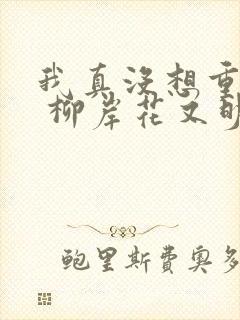 我真没想重
柳岸花又明
鲍里斯費奥多